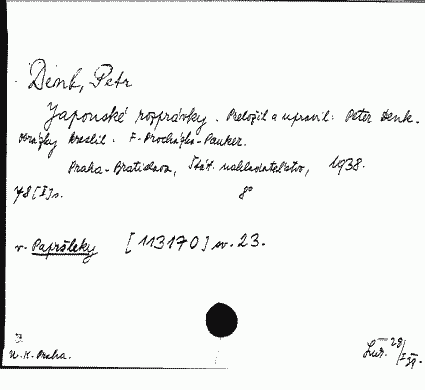 Denk, Petr
Japonské rozprávky. Preložil a upravil: Peter Denk.
Obrázky kreslil: F. Procházka-Pauker.
Praha-Bratislava, Štát. nakladateľstvo, 1938.
78 [I] s. 8°
v. Papršleky [113170] sv. 23.
U.K. Praha.
28/I 39.